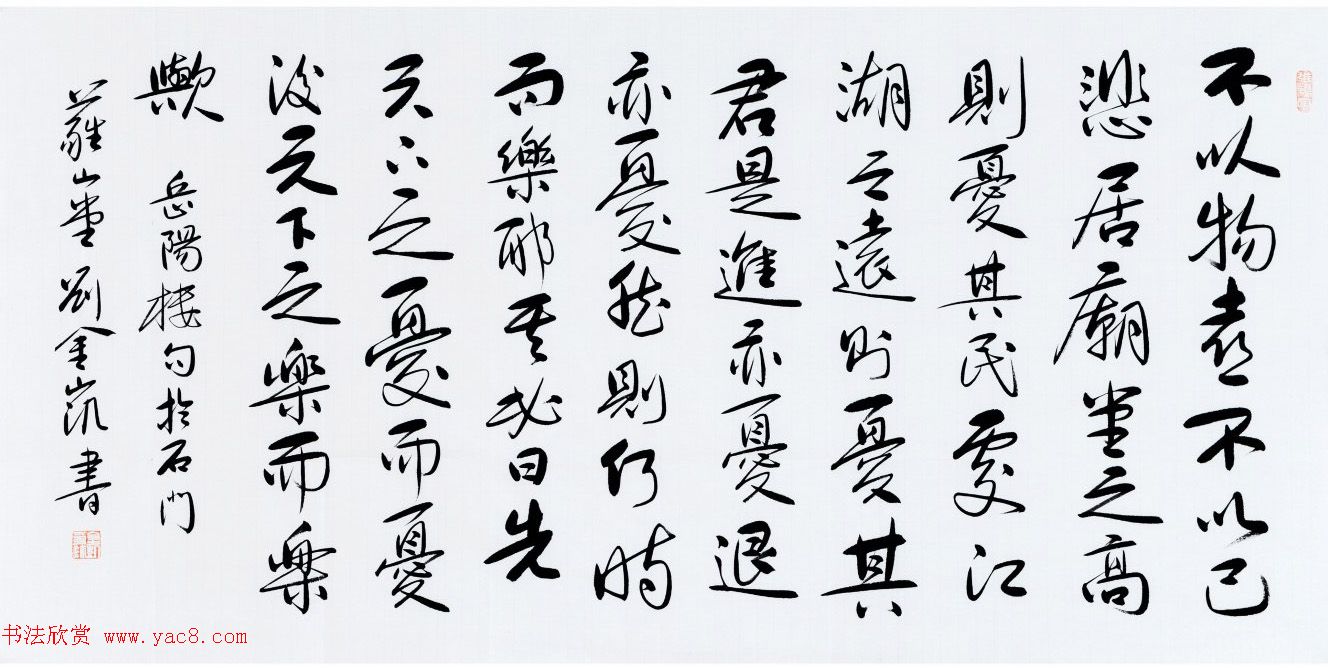 不以物喜不以己
悲居廟堂之高
則憂其民處江
湖之遠則憂其
君是進亦憂退
亦憂然則何時
而樂耶其必曰先
天下之憂而憂
後天下之樂而樂
歟 岳陽樓句於石門
蘿山堂劉金凱書
书法欣赏 www.yac8.com